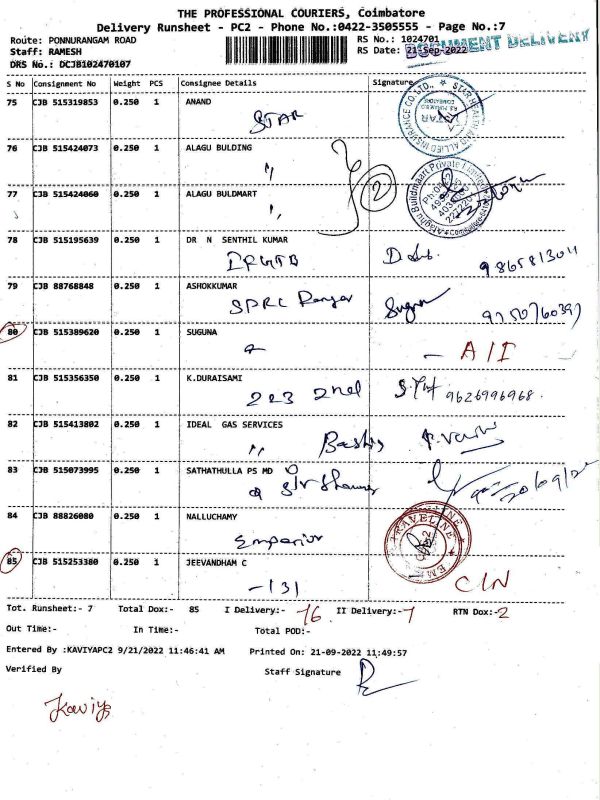 THE PROFESSIONAL COURIERS, Coimbatore
Delivery Runsheet - PC2 - Phone No.:0422-3505555 - Page No.:7
Route: PONNURANGAM ROAD
RS No.: 1024701
Staff: RAMESH
RS Date: 21-Sep-2022
DOCUMENT DELIVERY
DRS No.: DCJB102470107
S No Consignment No Weight PCS Consignee Details Signature
75 CJB 515319853 0.250 1 ANAND
STAR
STAR HEALTH AND ALLIED INSURANCE CO.LTD.,
76 CJB 515424073 0.250 1 ALAGU BULDING
"
2
77 CJB 515424060 0.250 1 ALAGU BULDMART
"
78 CJB 515195639 0.250 1 DR N SENTHIL KUMAR
9865813011
79 CJB 88768848 0.250 1 ASHOKKUMAR
SPRC
9750760397
80 CJB 515389620 0.250 1 SUGUNA
- A/I
81 CJB 515356350 0.250 1 K.DURAISAMI
223 2nd
9626996968
82 CJB 515413802 0.250 1 IDEAL GAS SERVICES
"
83 CJB 515073995 0.250 1 SATHATHULLA PS MD
84 CJB 88826080 0.250 1 NALLUCHAMY
Emperior
TRAVELINE
85 CJB 515253380 0.250 1 JEEVANDHAM C
-131
C/N
Tot. Runsheet:- 7 Total Dox:- 85 I Delivery:- 76 II Delivery:- 7 RTN Dox:- 2
Out Time:- In Time:- Total POD:-
Entered By :KAVIYAPC2 9/21/2022 11:46:41 AM Printed On: 21-09-2022 11:49:57
Verified By Staff Signature
Kaviya